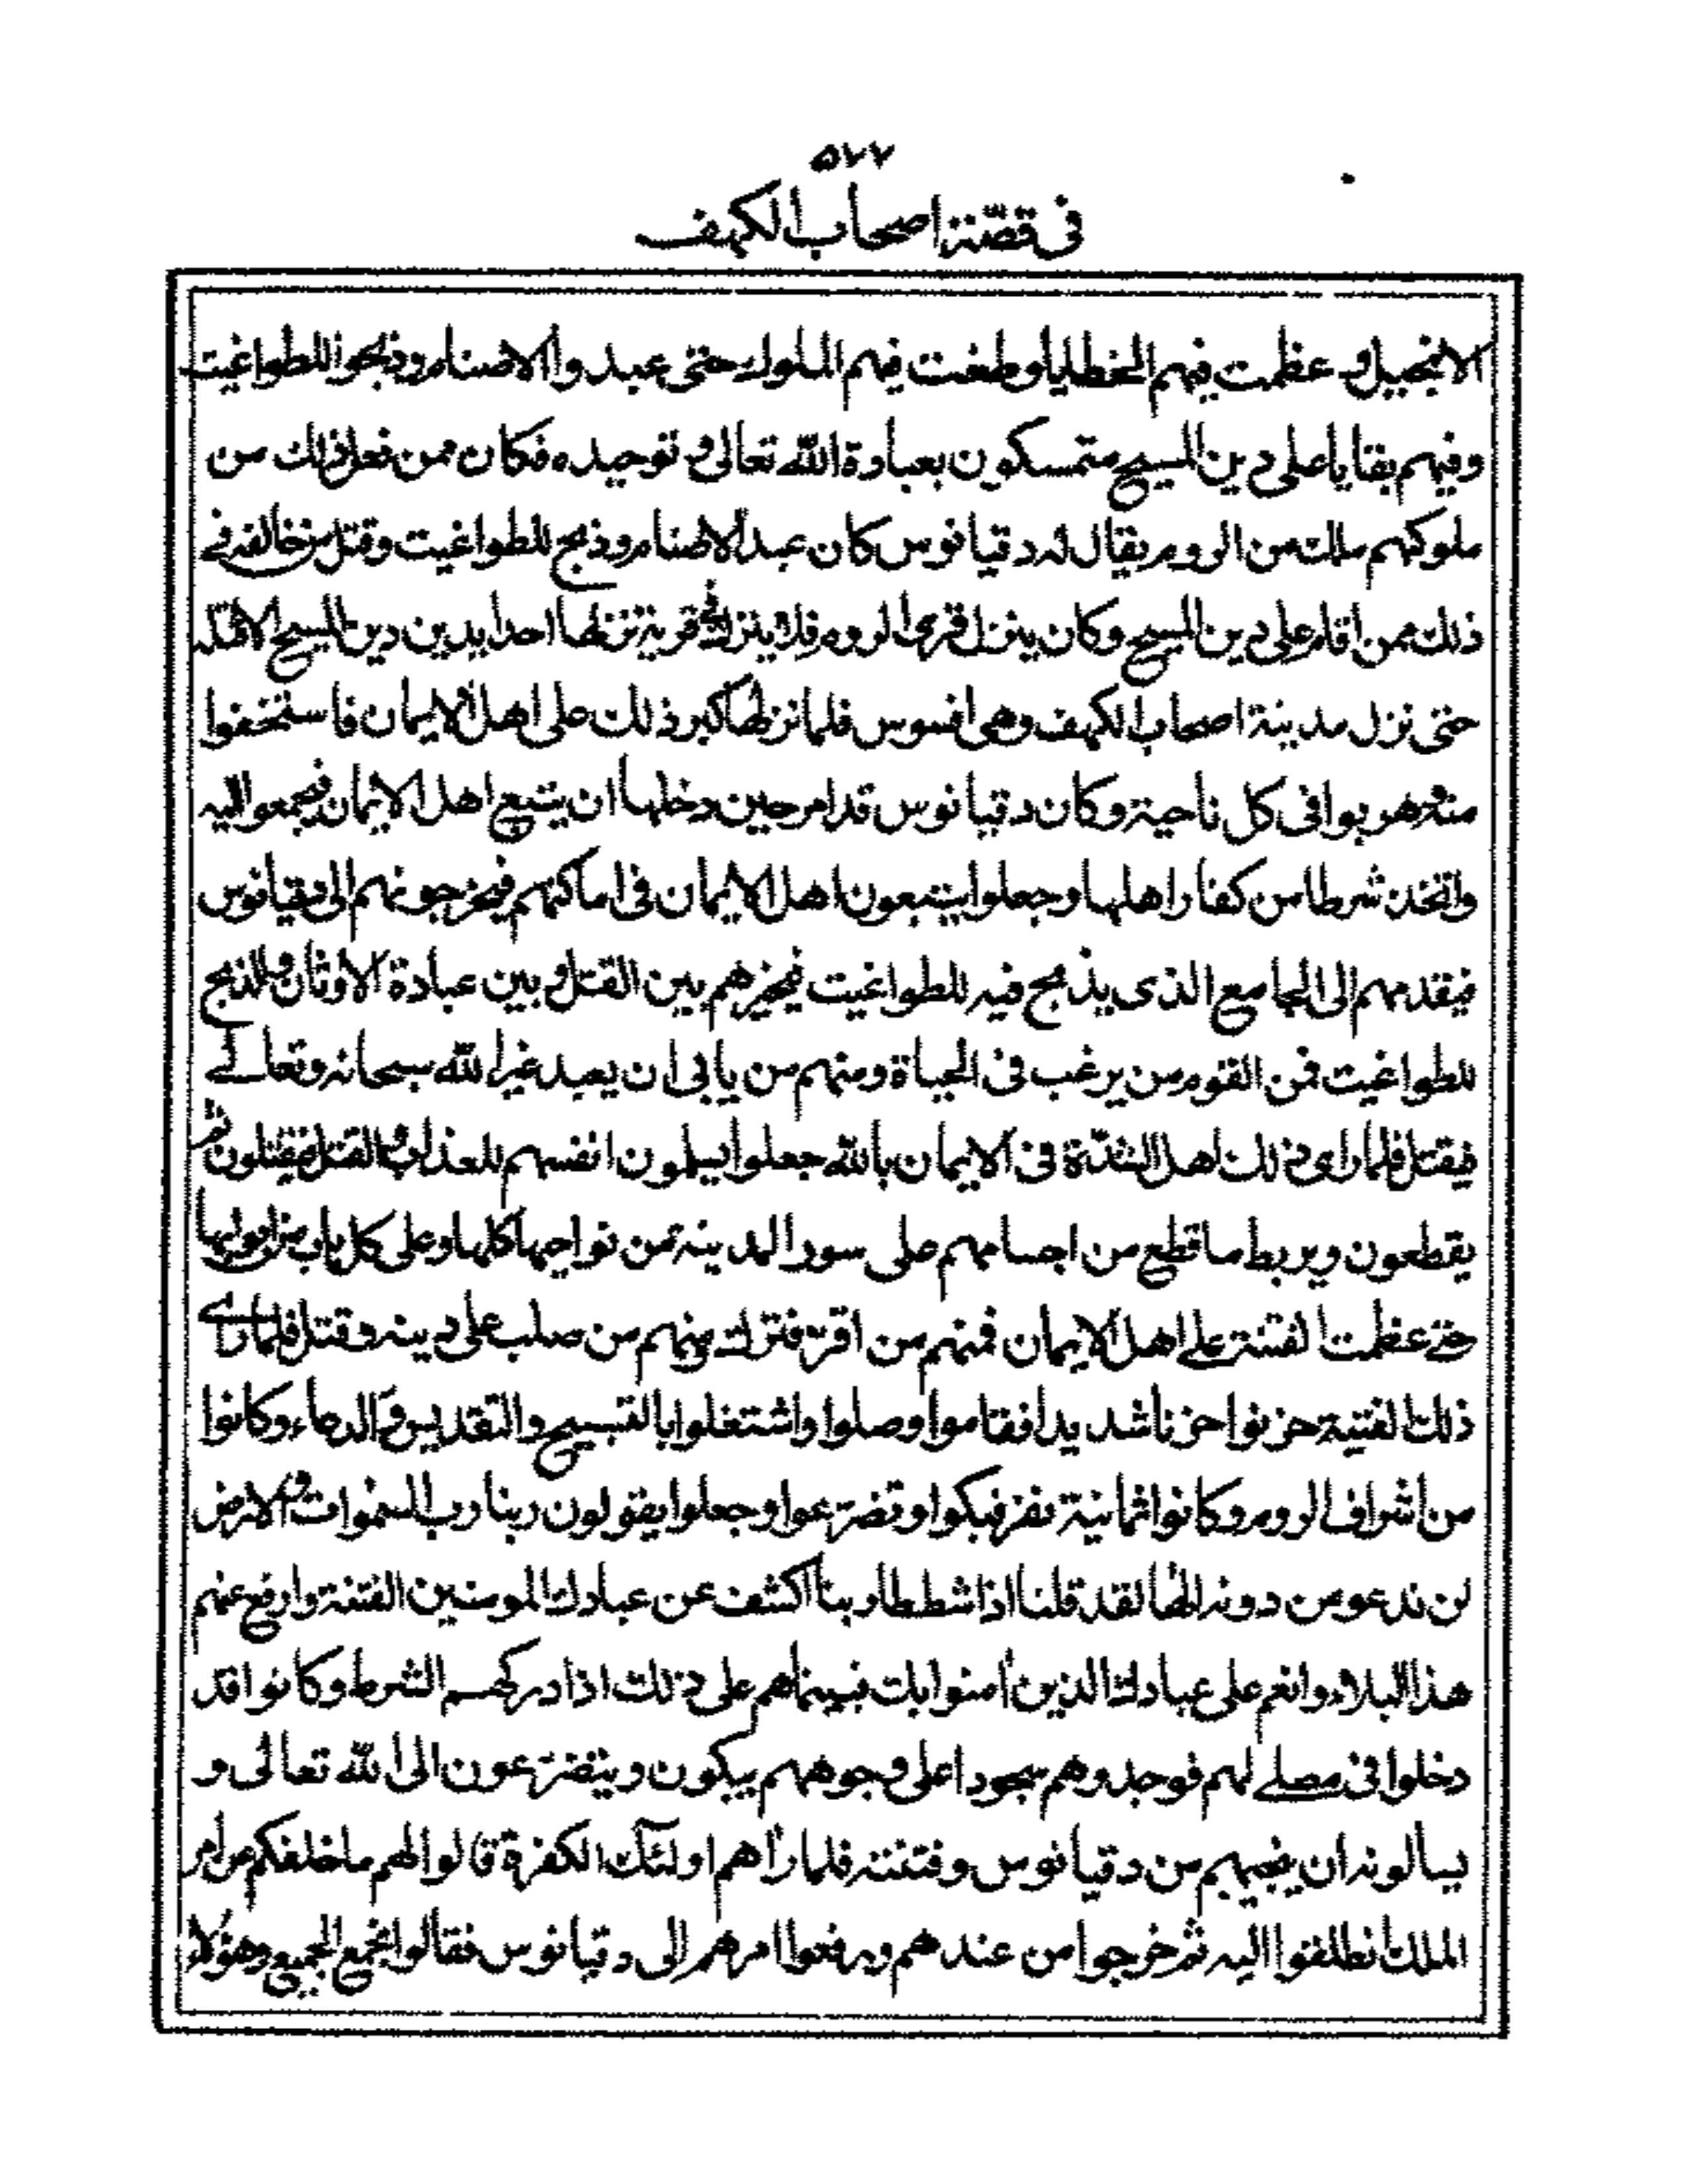 ٥٧٧
فى قصّة اصحاب الكهف
الانجيل وعظمت فيهم الخطايا وطغت فيهم الملوك حتى عبدوا الاصنام وذبحوا للطواغيت
وفيهم بقايا على دين المسيح متمسكون بعبادة الله تعالى وتوحيده فكان ممن فعل ذلك من
ملوكهم ملك من الروم يقال له دقيانوس كان عبد الاصنام وذبح للطواغيت وقتل من خالفه فے
ذلك ممن اقام على دين المسيح وكان ينزل قرى الروم فلا ينزل فى قرية نزلها احدا يدين دين المسيح الا قتله
حتى نزل مدينة اصحاب الكهف وهى افسوس فلما نزلها كبر ذلك على اهل الايمان فاستخفوا
منه وهربوا فى كل ناحية وكان دقيانوس قد امر حين دخلها ان يتبع اهل الايمان فيجمعوا اليه
واتخذ شرطا من كفار اهلها وجعلوا يتبعون اهل الايمان فى اماكنهم فيخرجونهم الى دقيانوس
فيقدمهم الى الجامع الذى يذبح فيه للطواغيت فيخيرهم بين القتل وبين عبادة الاوثان والذبح
للطواغيت فمن القوم من يرغب فى الحياة ومنهم من يابى ان يعبد غير الله سبحانه وتعالے
فيقتل فلما راى ذلك اهل الشدّة فى الايمان بالله جعلوا يسلمون انفسهم للعذاب والقتل فيقتلون ثم
يقطعون ويربط ما قطع من اجسامهم على سور المدينة من نواحيها كلها وعلى كل باب من ابوابها
حتے عظمت الفتنة علے اهل الايمان فمنهم من اقر فترك ومنهم من صلب على دينه وقتل فلما راے
ذلك الفتية حزنوا حزنا شديدا فقاموا وصلوا واشتغلوا بالتسبيح والتقديس والدعاء وكانوا
من اشراف الروم وكانوا ثمانية نفر فبكوا وتضرعوا وجعلوا يقولون ربنا رب السموات والارض
لن ندعو من دونه الها لقد قلنا اذا شططا ربنا اكشف عن عبادك المومنين الفتنة وارفع عنهم
هذا البلاء وانعم على عبادك الذين امنوا بك فبينماهم على ذلك اذ ادركهم الشرط وكانوا قد
دخلوا فى مصلے لهم فوجدوهم سجودا على وجوههم يبكون ويتضرعون الى الله تعالى و
يسالونه ان ينجيهم من دقيانوس وفتنته فلما راهم اولئك الكفرة قالوا لهم ما خلفكم عن امر
الملك انطلقوا اليه ثم خرجوا من عندهم ورفعوا امرهم الى دقيانوس فقالوا نجمع الجميع وهؤلاء